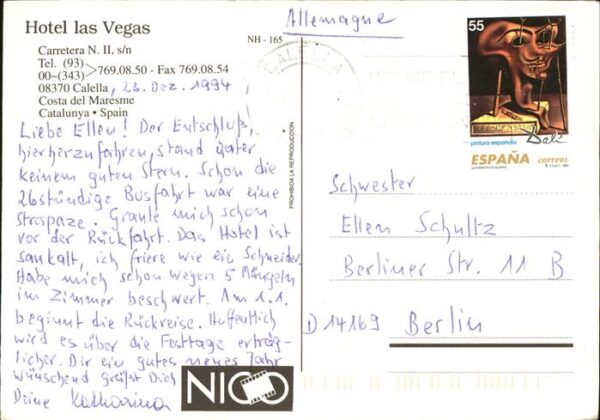 Hotel las Vegas
Carretera N. II, s/n
Tel. (93)
00~(343) 769.08.50 - Fax 769.08.54
08370 Calella, 23. Dez. 1994
Costa del Maresme
Catalunya • Spain
NH - 165
Allemagne
CALELLA
55
Dalí
pintura española
ESPAÑA correos
PROHIBIDA LA REPRODUCCION
Liebe Ellen! Der Entschluß,
hierherzufahren, stand unter
keinem guten Stern. Schon die
26stündige Busfahrt war eine
Strapaze. Graule mich schon
vor der Rückfahrt. Das Hotel ist
saukalt, ich friere wie ein Schneider.
Habe mich schon wegen 5 Mängeln
im Zimmer beschwert. Am 1.1.
beginnt die Rückreise. Hoffentlich
wird es über die Festtage erträg-
licher. Dir ein gutes neues Jahr
wünschend grüßt Dich
Deine Katharina
NICO
Schwester
Ellen Schultz
Berliner Str. 11 B
D 14169 Berlin